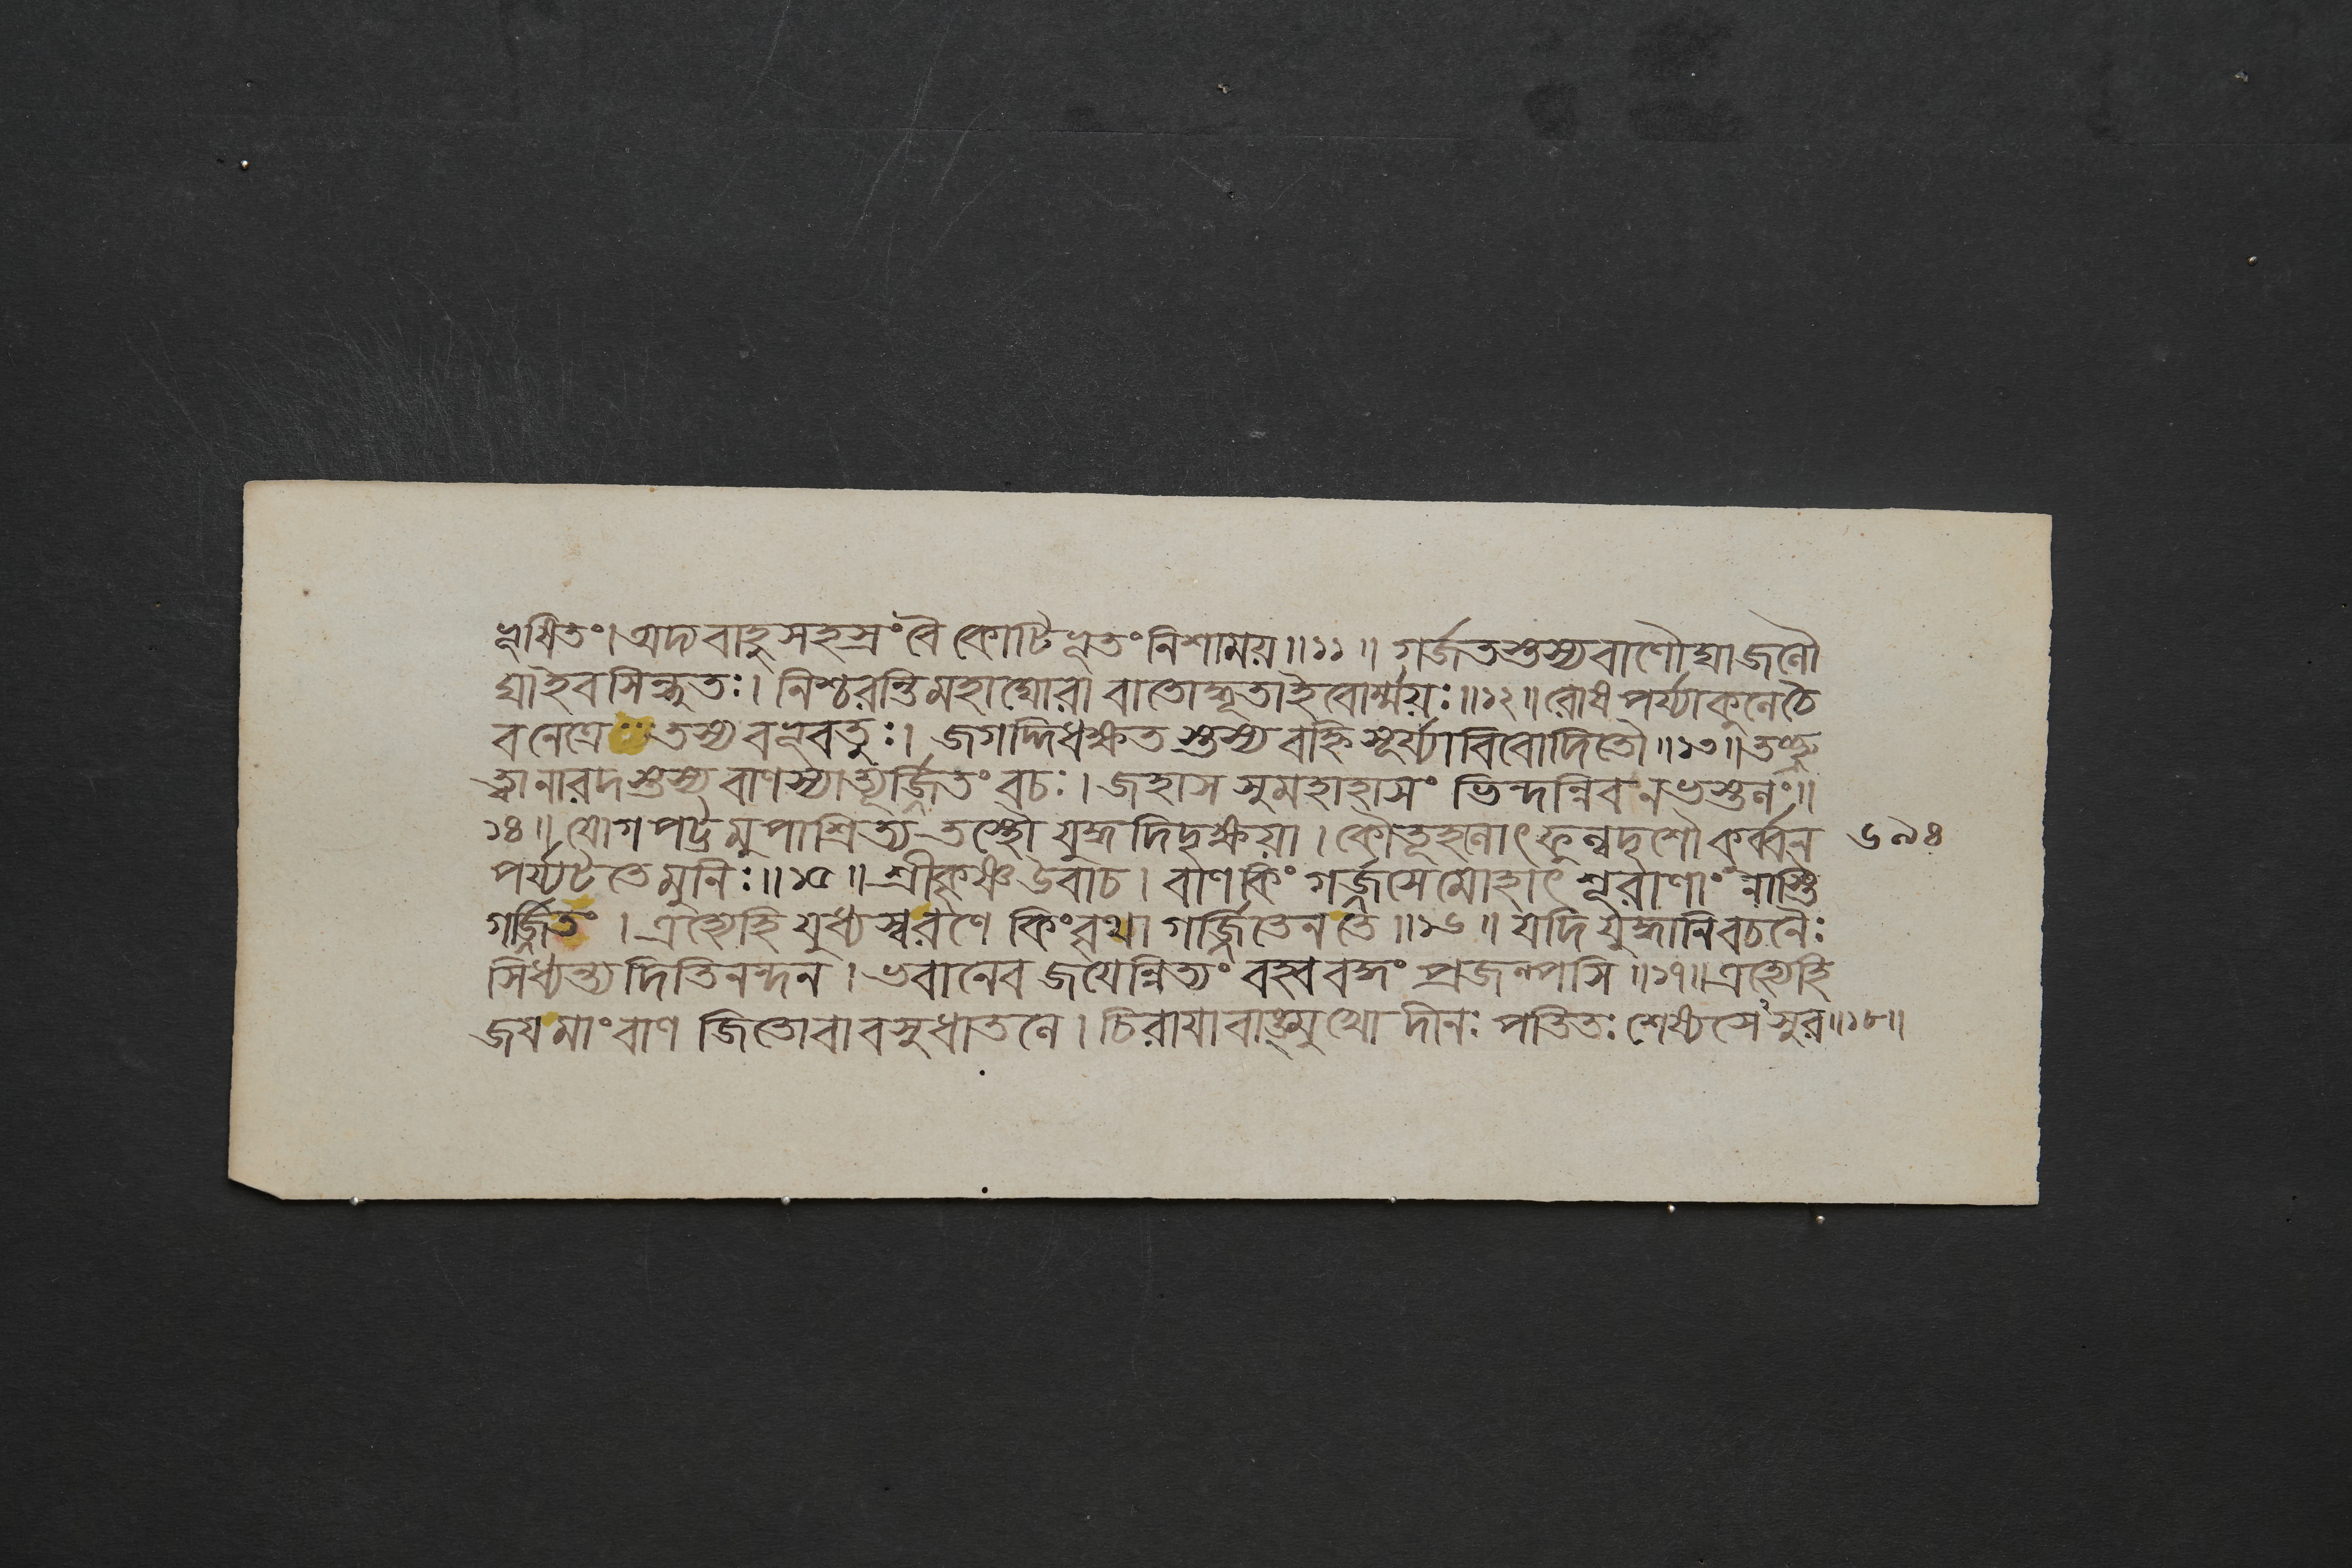 ভূষিতং। অদ্য বাহুসহস্রং বৈ কোটিভূতং নিশাময়॥১১॥ গর্জতস্তস্য বাণৌঘা জলৌ
ঘা ইব সিন্ধুতঃ। নিশ্চরন্তি মহাঘোরা বাতোদ্ধূতা ইবোর্ম্ময়ঃ॥১২॥ রোষপর্য্যাকুলে চৈ
ব নেত্রে তস্য বভূবতুঃ। জগদ্দিধক্ষতস্তস্য বহ্নিসূর্য্যাবিবোদিতৌ॥১৩॥ তচ্ছ্রু
ত্বা নারদস্তস্য বাণস্যাত্যূর্জ্জিতং বচঃ। জহাস সুমহাহাসং ভিন্দন্নিব নভস্তলং॥
১৪॥ যোগপট্টমুপাশ্রিত্য তস্থৌ যুদ্ধদিদৃক্ষয়া। কৌতূহলোৎফুল্লদৃশৌ কুর্ব্বন ৬৯৪
পর্য্যটতে মুনিঃ॥১৫॥ শ্রীকৃষ্ণ উবাচ। বাণ কিং গর্জ্জসে মোহাৎ শূরাণাং নাস্তি
গর্জ্জিতং। এহ্যেহি যুধ্যস্ব রণে কিং বৃথা গর্জ্জিতেন তে॥১৬॥ যদি যুদ্ধানি বচনৈঃ
সিধ্যন্ত্যদিতিনন্দন। ভবানেব জয়েন্নিত্যং বহ্ববদ্ধং প্রজল্পসি॥১৭॥ এহ্যেহি
জয় মাং বাণ জিতো বা বসুধাতলে। চিরায়াবাঙ্মুখো দীনঃ পতিতঃ শেষ্যসেঽসুর॥১৮॥